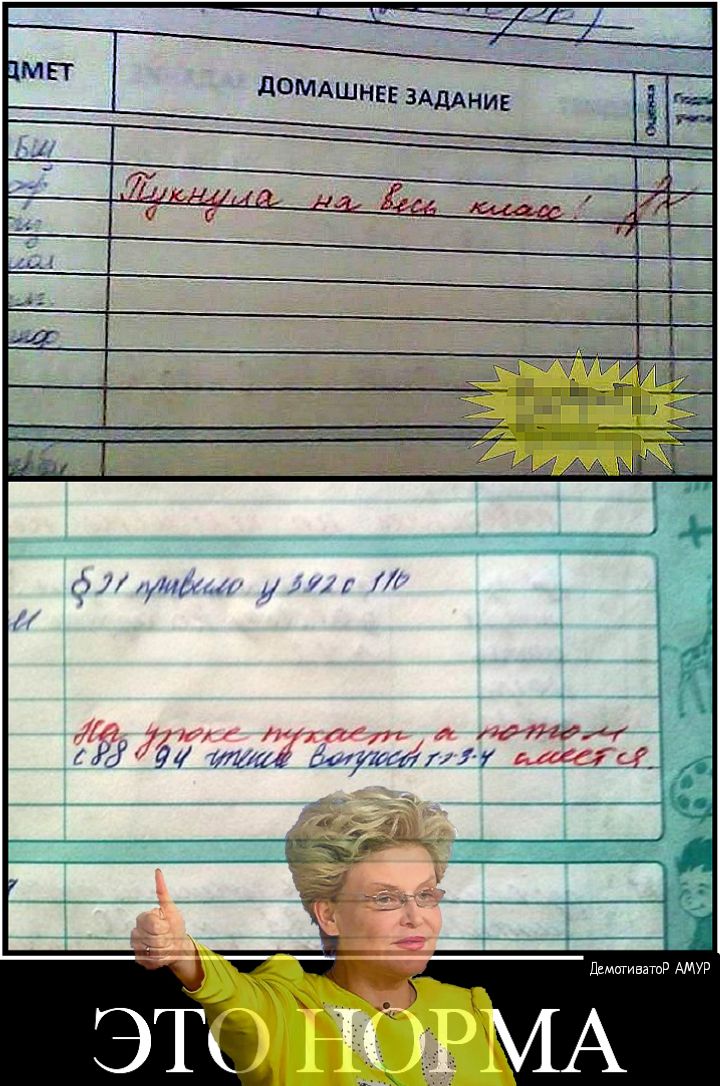 ДМЕТ
ДОМАШНЕЕ ЗАДАНИЕ
Оценка
Пукнула на весь класс!
§ 21 правило у 392 с 116
На уроке пукает, а потом
с 88 94 чтение вопросы 1-2-3-4 смеется.
ДемотиватоР АМУР
ЭТО НОРМА